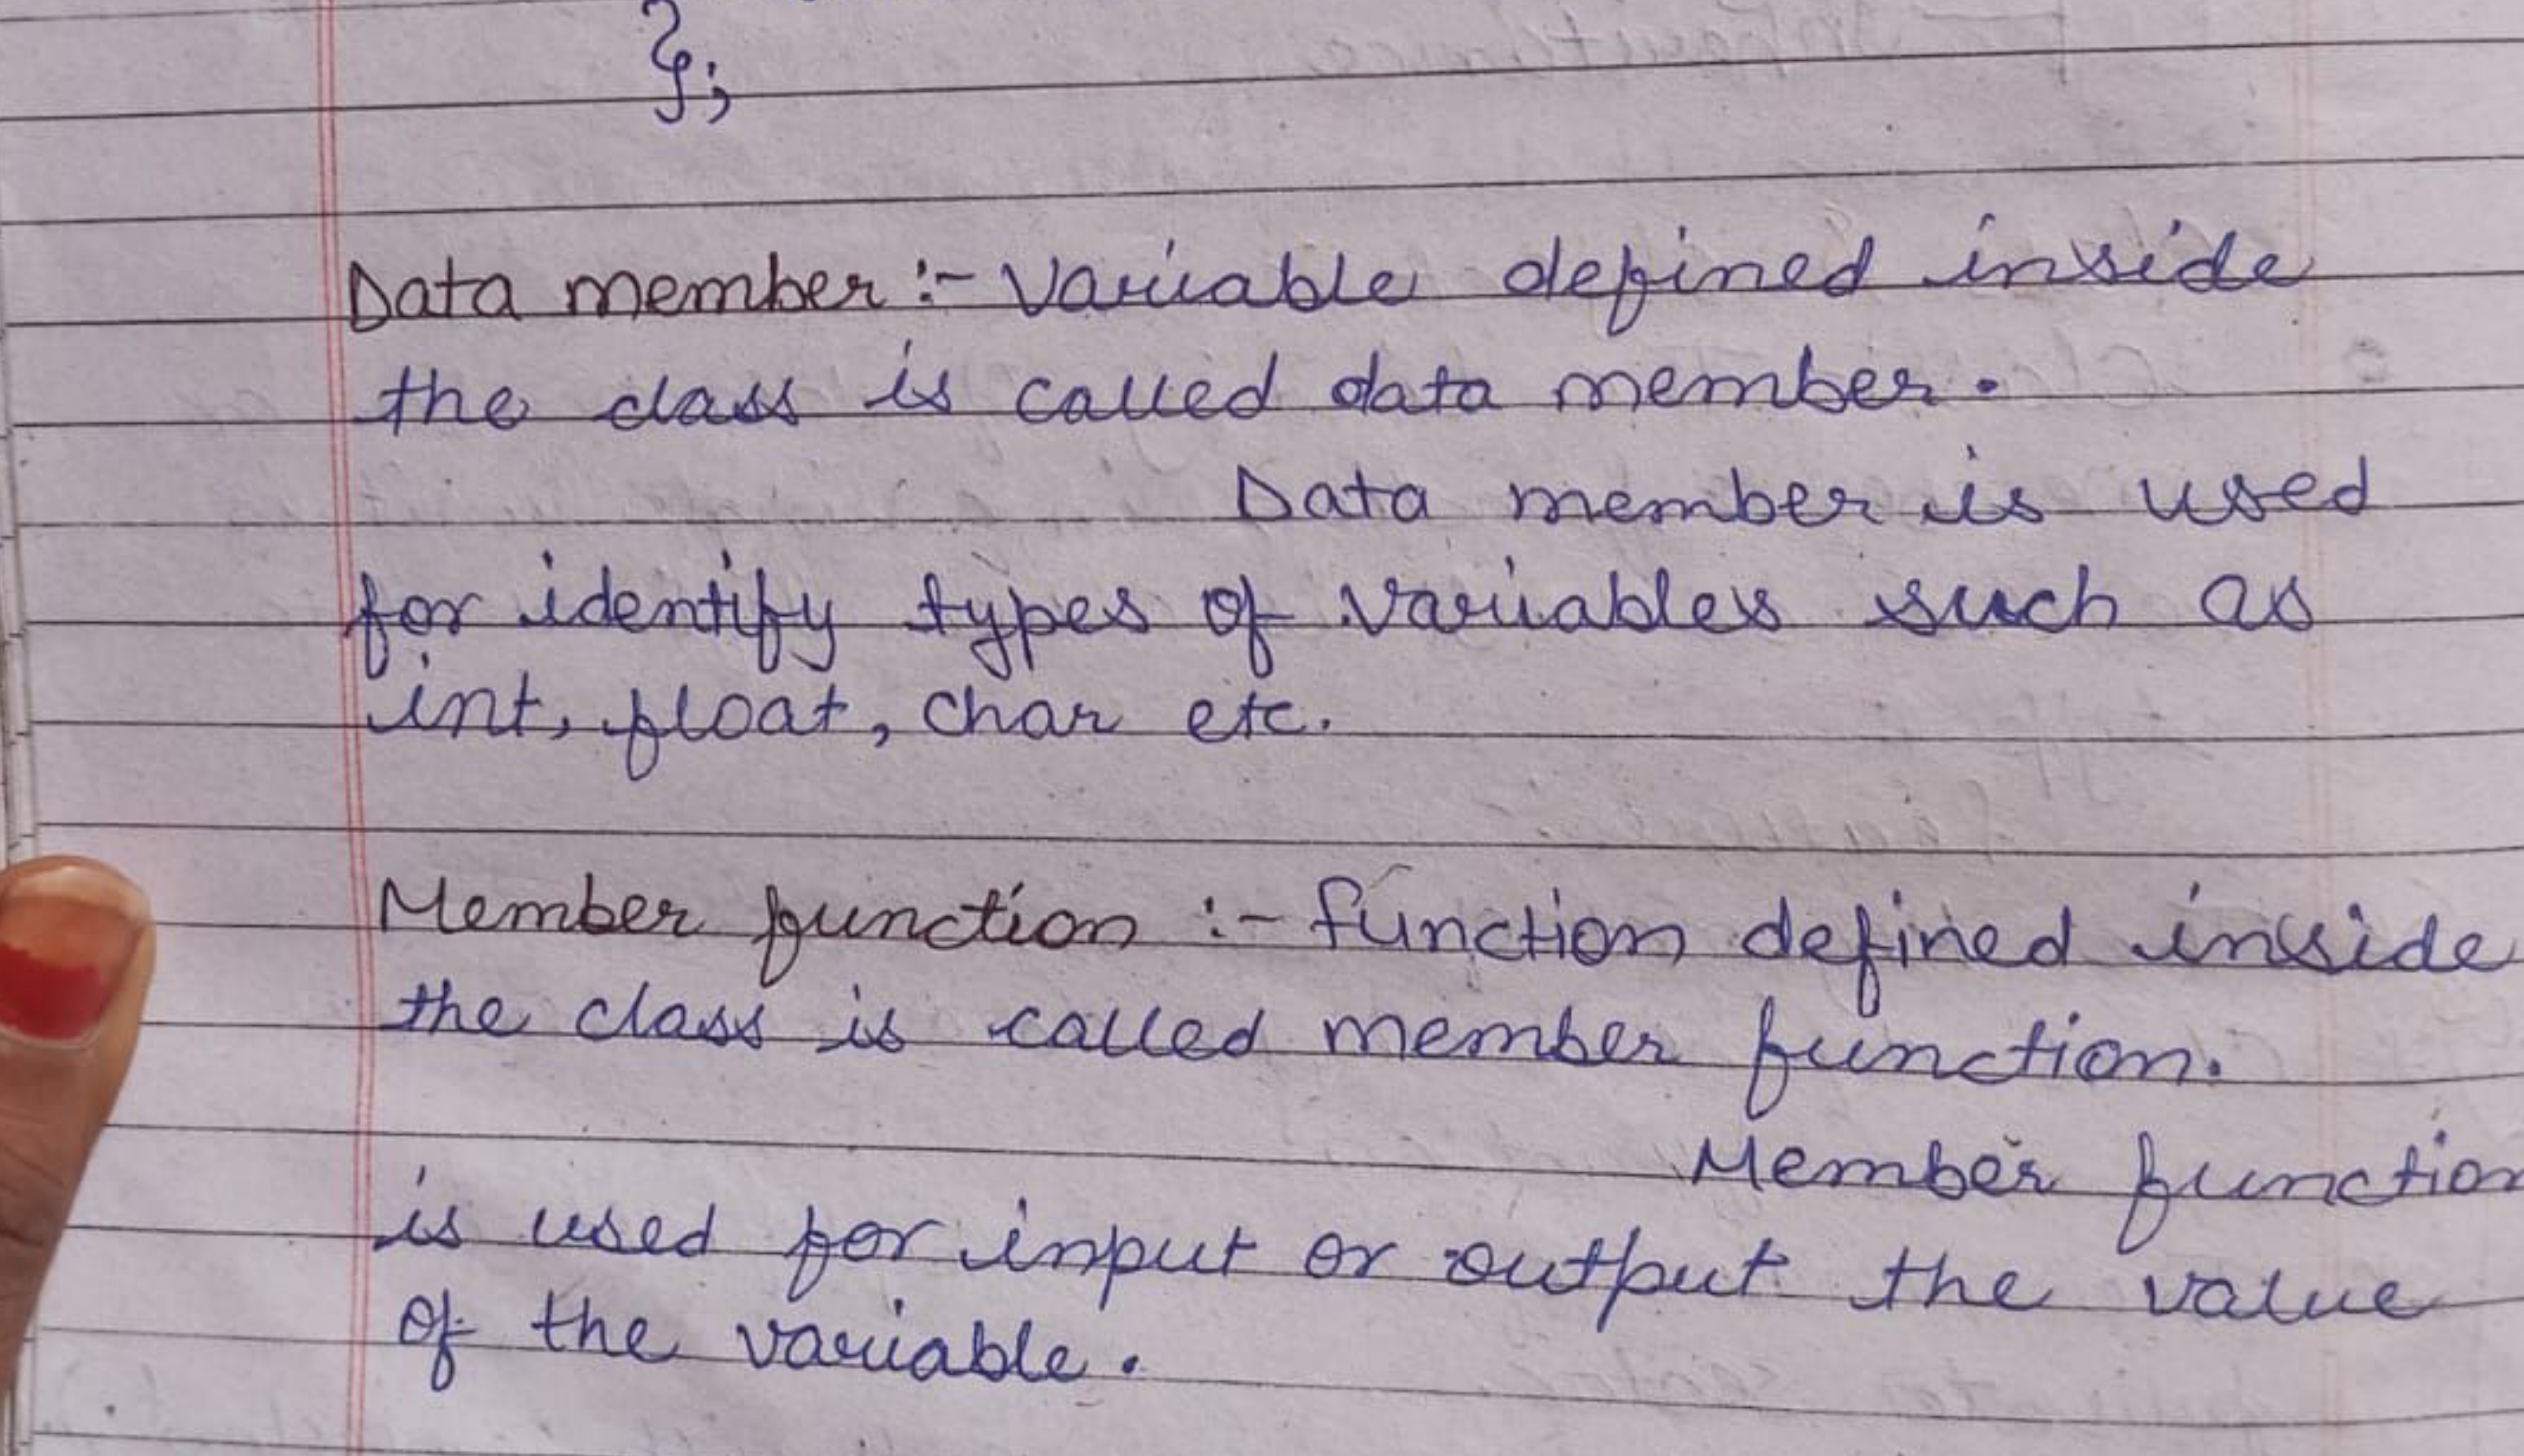 };
Data member :- Variable defined inside
the class is called data member.
Data member is used
for identify types of variables such as
int, float, char etc.
Member function :- function defined inside
the class is called member function.
Member function
is used for input or output the value
of the variable.